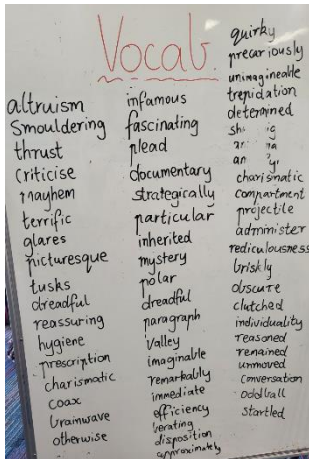 Vocab.
altruism
Smouldering
thrust
criticise
mayhem
terrific
glares
picturesque
tusks
dreadful
reassuring
hygiene
prescription
charismatic
coax
brainwave
otherwise
infamous
fascinating
plead
documentary
strategically
particular
inherited
mystery
polar
dreadful
paragraph
valley
imaginable
remarkably
immediate
efficiency
berating
disposition
approximately
quirky
precariously
unimagineable
trepidation
determined
charismatic
compartment
projectile
administer
rediculousness
briskly
obscure
clutched
individuality
reasoned
remained
unmoved
conversation
oddball
startled